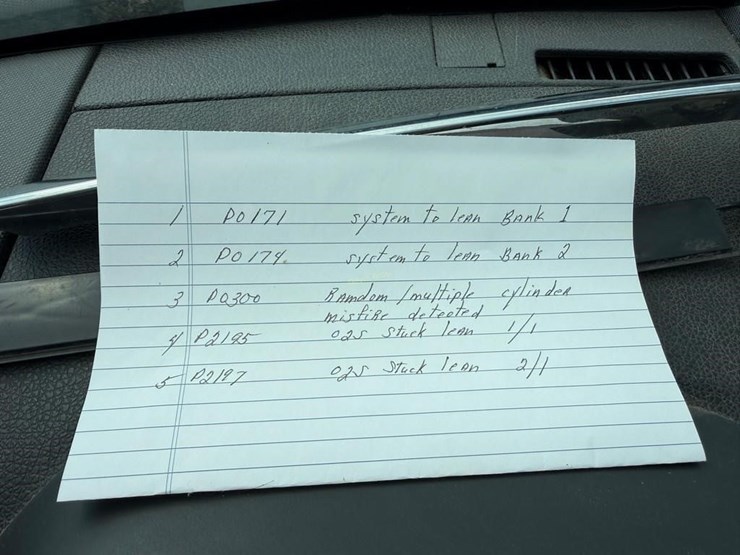 1 P0171 system to lean Bank 1
2 P0174 system to lean Bank 2
3 P0300 Random/multiple cylinder
misfire detected
4 P2195 O2S Stuck lean 1/1
5 P2197 O2S Stuck lean 2/1